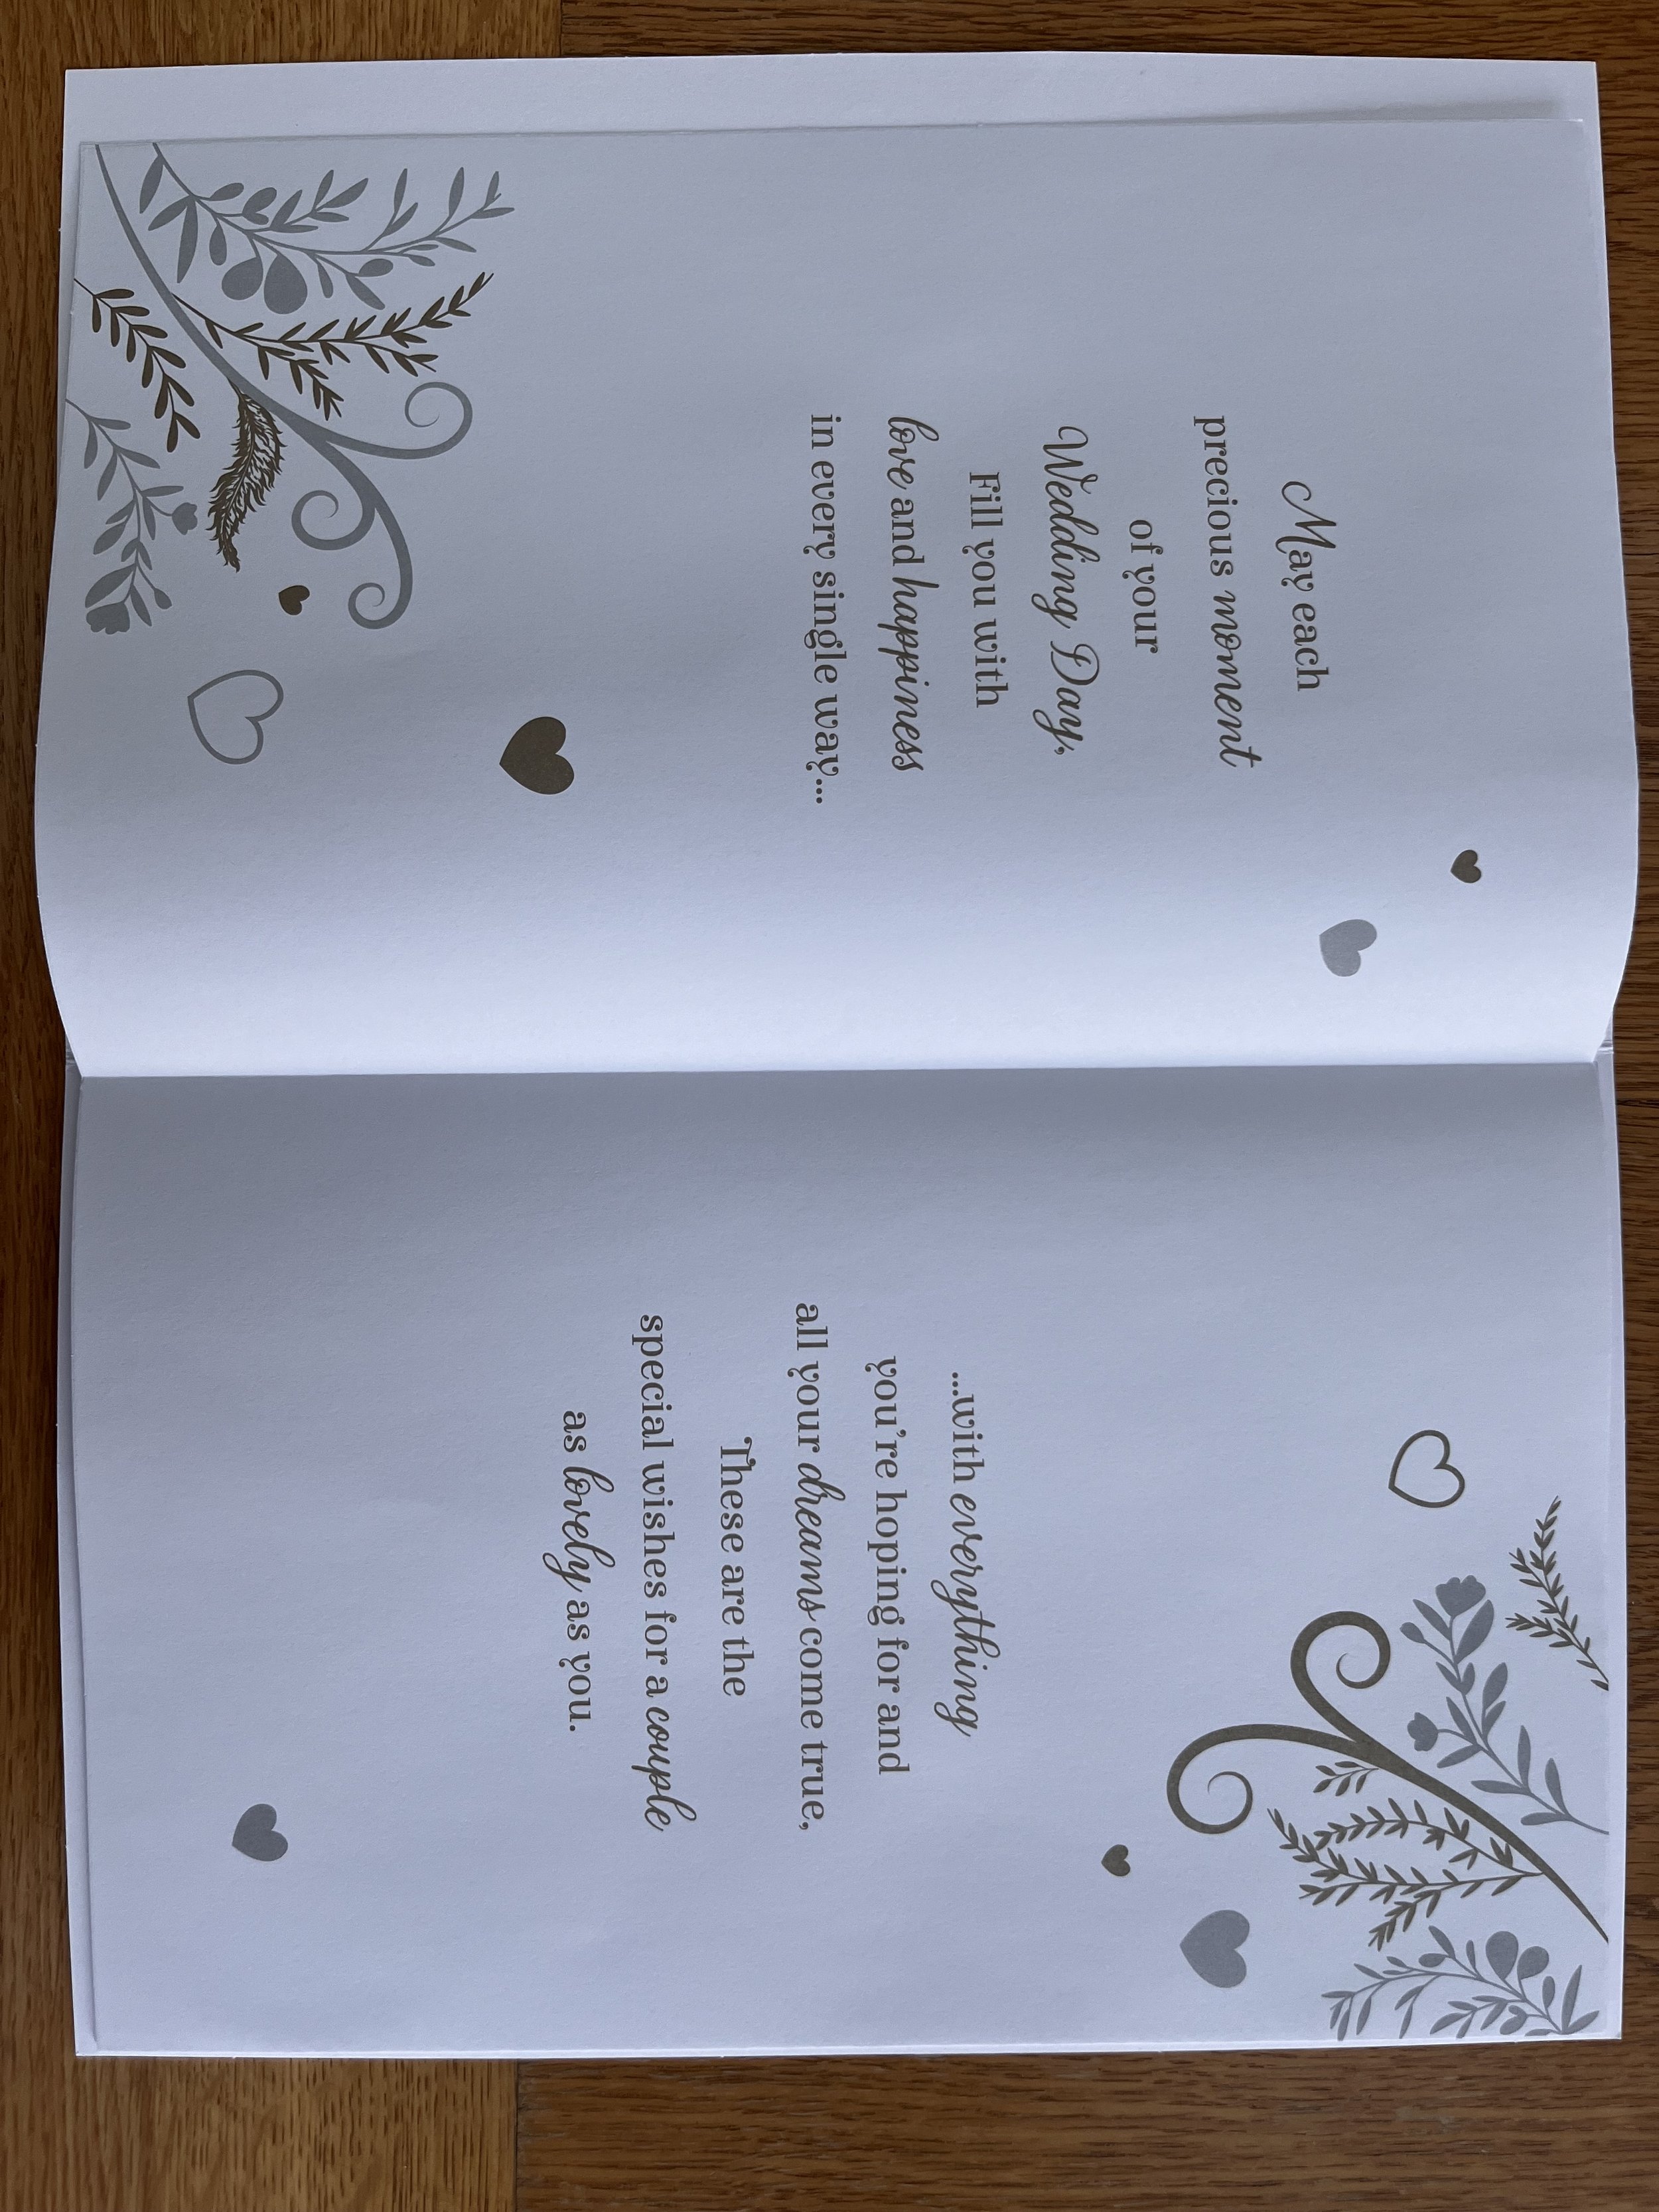 May each
precious moment
of your
Wedding Day,
Fill you with
love and happiness
in every single way...
...with everything
you're hoping for and
all your dreams come true,
These are the
special wishes for a couple
as lovely as you.